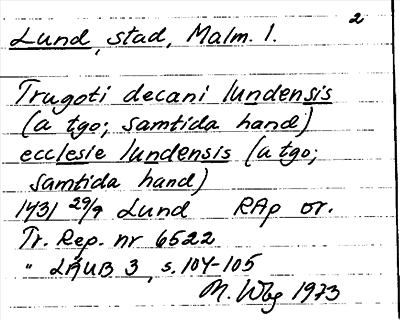 2
Lund, stad, Malm. l.
Trugoti decani lundensis
(a tgo; samtida hand)
ecclesie lundensis (a tgo;
samtida hand)
1431 29/9 Lund RAp or.
Tr. Rep. nr 6522
" LÄUB 3, s. 104-105
M. Wbg 1973